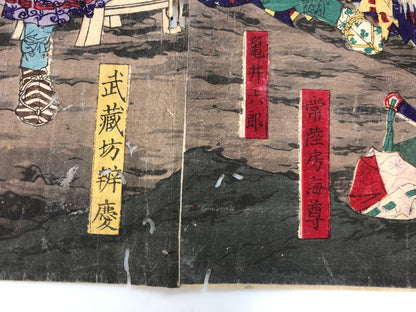 亀井六郎
常陸房海尊
武藏坊辨慶